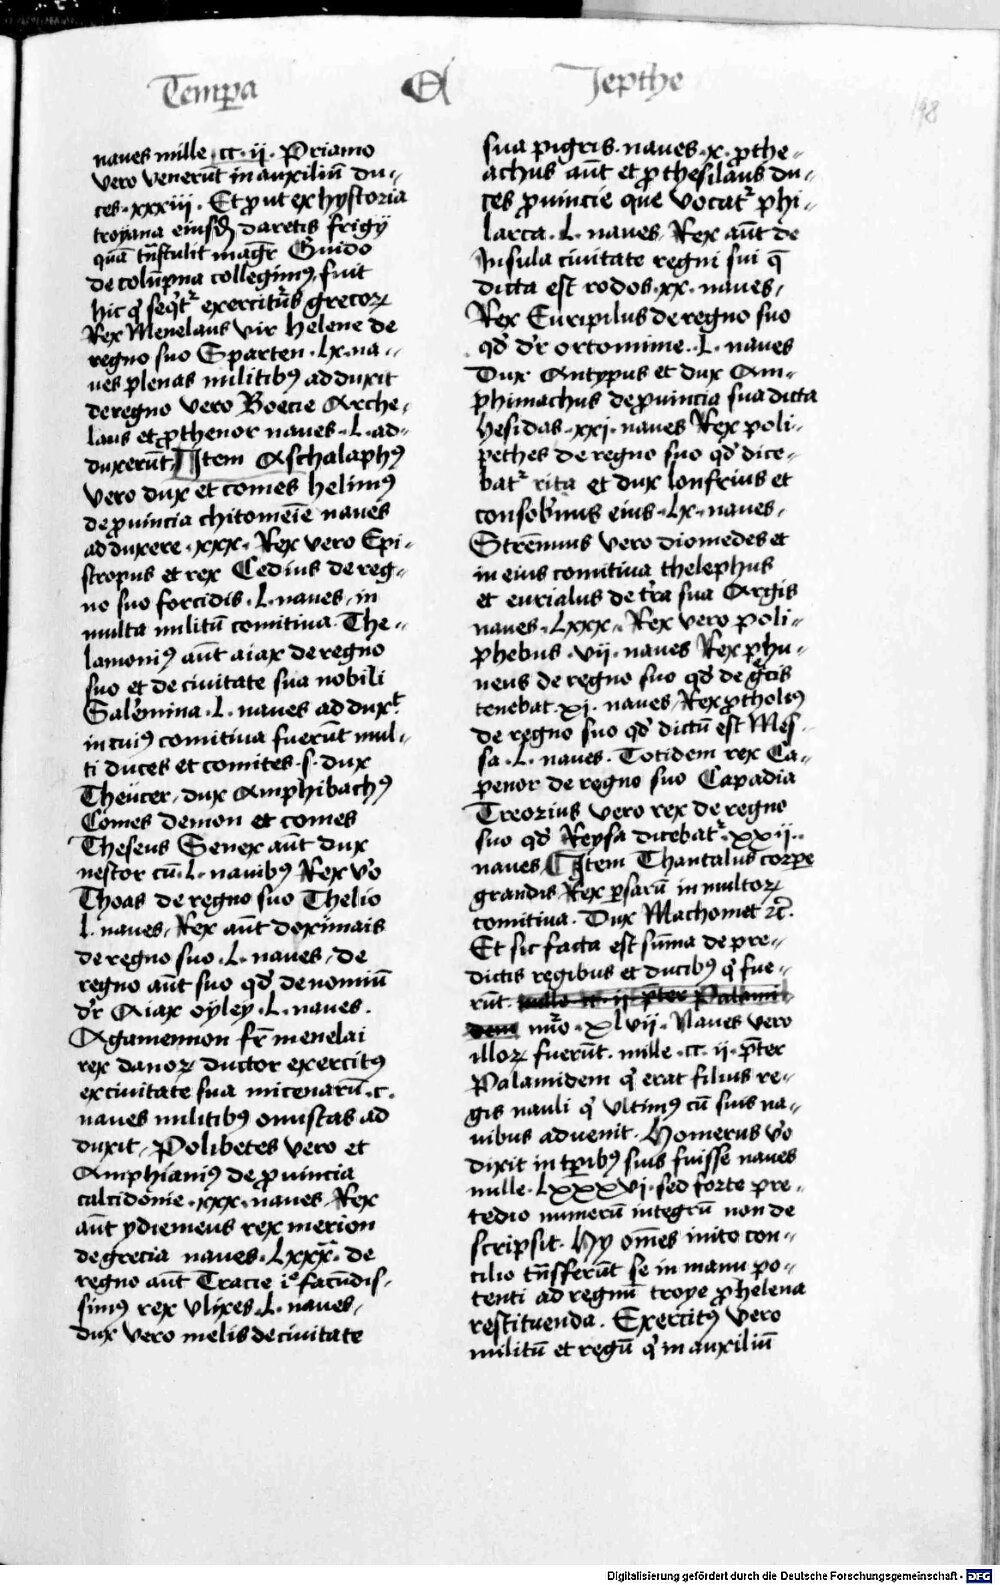 Tempa Et Jepthe
198
naves mille cc ij. Priamo
vero venerūt in auxiliū du-
ces xxxiij. Et prout ex hystoria
troyana eiusd daretis frigij
quā tnstulit magr Guido
de colūpna collegimus, fuit
hic qi seqtr exercitus grecorꝝ
Rex Menelaus vir helene de
regno suo Sparten Lx na-
ves plenas militibꝰ adduxit
de regno vero Boecie Arche-
laus et prothenor naves L ad-
duxerūt Item Aschalaphꝰ
vero dux et comes helimꝰ
de provincia chitomeīe naves
adduxere xxx. Rex vero Epi-
stropus et rex Cedius de reg-
no suo forcidis L naves, in
multa militū comitiva. The-
lamoniꝰ aūt aiax de regno
suo et de civitate sua nobili
Salemina L naves adduxt
in cuiꝰ comitiva fuerūt mul-
ti duces et comites s. dux
Theucer, dux Amphibachꝰ
Comes demon et comes
Theseus Senex aūt dux
nestor cū L navibꝰ Rex vo
Thoas de regno suo Thelio
L naves, Rex aūt doximais
de regno suo L naves, de
regno aūt suo qd denomiū
dr Aiax oyley L naves.
Agamennon fr menelai
rex danorꝝ ductor exercitꝰ
ex civitate sua micenarū c.
naves militibꝰ onustas ad
duxit, Polibetes vero et
Amphianiꝰ de provincia
calcidonie xxx naves Rex
aūt ydiemeus rex merion
de grecia naves Lxxx. de
regno aūt Tracie ie facūdis-
simꝰ rex vlixes L naves,
dux vero melis de civitate
sua pigris naves x prothe-
achus aūt et prothesilaus du-
ces provincie que vocatr phi-
larca L naves, Rex aūt de
Insula civitate regni sui q
dicta est rodos xx naves,
Rex Euripilus de regno suo
qd dr ortomime L naves
Dux Antypus et dux Am-
phimachus de provincia sua dicta
hesidas xxj naves Rex poli-
pethes de regno suo qd dice-
batr rita et dux lonfrius et
consobrinus eius Lx naves,
Strēnuus vero diomedes et
in eius comitiva thelephus
et eurialus de tra sua Argis
naves Lxxx. Rex vero poli-
phebus vij naves Rex phi-
neus de regno suo qd de grcis
tenebat xj naves, Rex protholꝰ
de regno suo qd dictū est Mes-
sa L naves. Totidem rex Ca-
penor de regno suo Capadia
Treorius vero rex de regno
suo qd Reysa dicebatr xxij.
naves Item Thantalus corpe
grandis Rex psarū in multorꝝ
comitiva. Dux Machomet ꝛc.
Et sic facta est sūma de pre-
dictis regibus et ducibꝰ q fue-
rūt mille cc ij pter Palami
dem nūo xlvij. Naves vero
illorꝝ fuerūt mille cc ij. pter
Palamidem q erat filius re-
gis nauli q ultimꝰ cū suis na-
vibus advenit. Homerus vo
dixit in tpibꝰ suis fuisse naves
mille Lxxxvj sed forte pre-
tedio numerū integrū non de
scripsit. Hy omēs inito con-
cilio tnsferūt se in manu po-
tenti ad regnū troye pro helena
restituenda. Exercitꝰ vero
militū et regū q in auxiliū
Digitalisierung gefördert durch die Deutsche Forschungsgemeinschaft - DFG